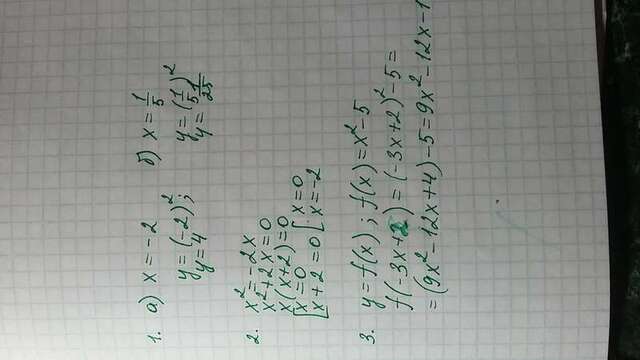 1. а) x = -2 б) x = 1/5
y = (-2)²; y = (1/5)²
y = 4 y = 1/25
2. x² = -2x
x² + 2x = 0
x(x+2) = 0
[x = 0
[x+2 = 0 [x = 0
[x = -2
3. y = f(x); f(x) = x² - 5
f(-3x+2) = (-3x+2)² - 5 =
= (9x² - 12x + 4) - 5 = 9x² - 12x - 1